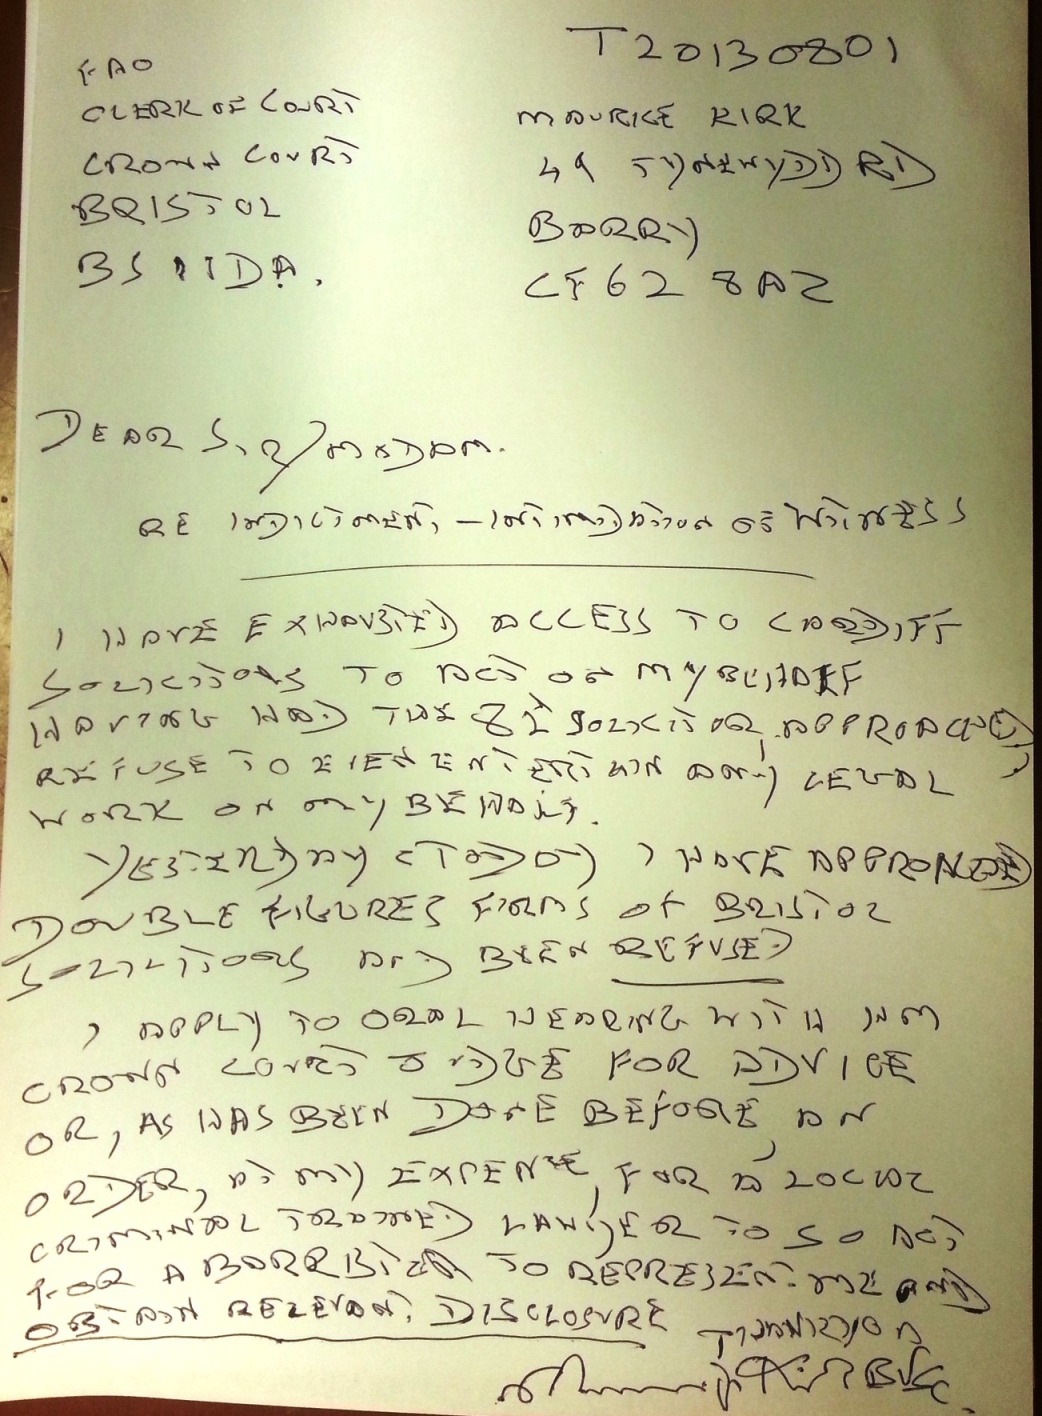 T20130801
FAO
CLERK OF COURT
CROWN COURT
BRISTOL
BS1 1DA.
MAURICE KIRK
49 TYNEWYDD RD
BARRY
CF62 8AZ
DEAR SIR/MADAM.
RE INDICTMENT - INTIMIDATION OF WITNESS
I HAVE EXHAUSTED ACCESS TO CARDIFF
SOLICITORS TO ACT ON MY BEHALF
HAVING HAD THE SOLICITOR, APPROACHED,
REFUSE TO EVEN ENTERTAIN ANY LEGAL
WORK ON MY BEHALF.
YESTERDAY & TODAY I HAVE APPROACHED
DOUBLE FIGURES FIRMS OF BRISTOL
SOLICITORS AND BEEN REFUSED
I APPLY TO ORAL HEARING WITH HM
CROWN COURT JUDGE FOR ADVICE
OR, AS HAS BEEN DONE BEFORE, AN
ORDER, AT MY EXPENSE, FOR A LOCAL
CRIMINAL TRAINED LAWYER TO SO ACT
FOR A BARRISTER TO REPRESENT ME AND
OBTAIN RELEVANT DISCLOSURE